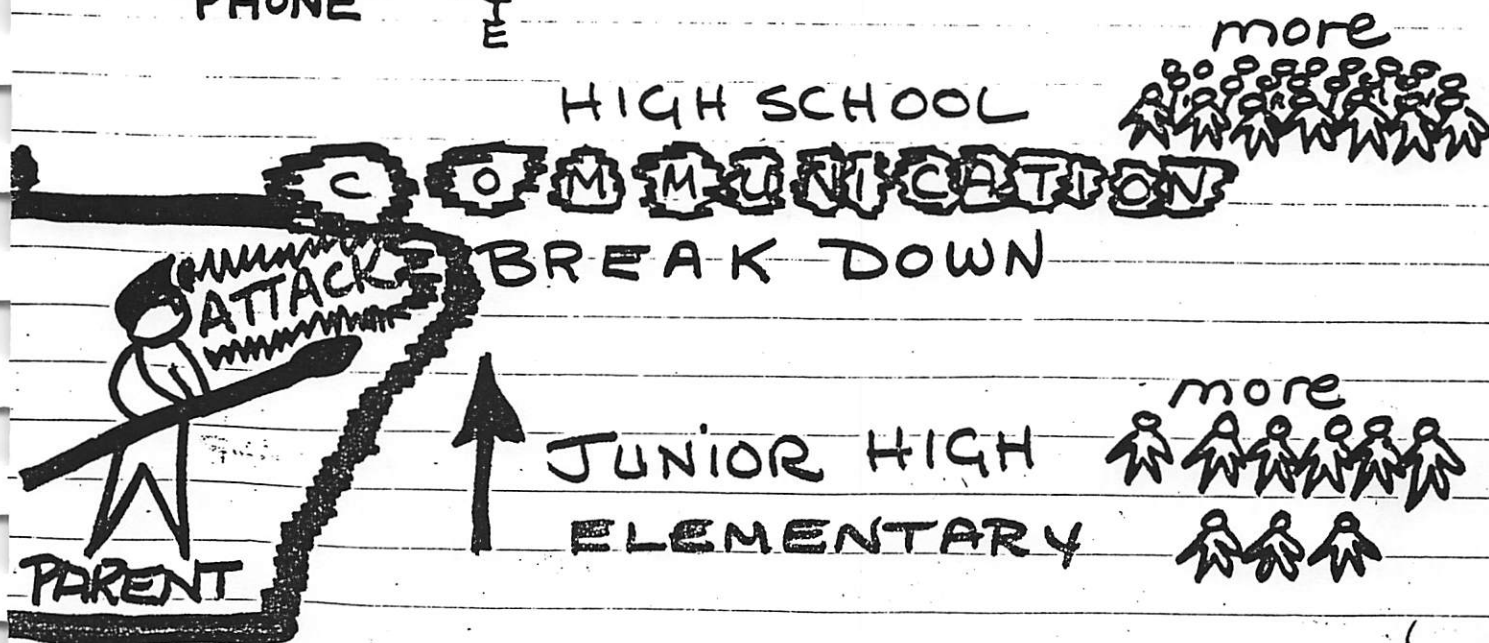 PHONE
T
E
more
HIGH SCHOOL
COMMUNICATION
BREAK DOWN
ATTACK
more
JUNIOR HIGH
ELEMENTARY
PARENT